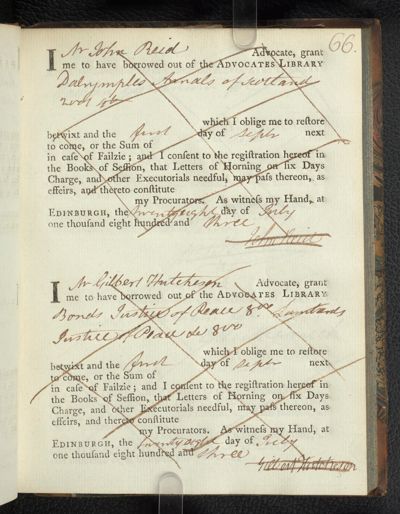 66.
I Mr John Reid Advocate, grant
me to have borrowed out of the ADVOCATES LIBRARY
Dalrymples Annals of Scotland
2 vols 4to
which I oblige me to reſtore
betwixt and the first day of Septr next
to come, or the Sum of
in caſe of Failzie; and I conſent to the regiſtration hereof in
the Books of Seſſion, that Letters of Horning on ſix Days
Charge, and other Executorials needful, may paſs thereon, as
effeirs, and thereto conſtitute
my Procurators. As witneſs my Hand, at
EDINBURGH, the twentyeight day of July
one thouſand eight hundred and three
John Reid
I Mr Gilbert Hutcheson Advocate, grant
me to have borrowed out of the ADVOCATES LIBRARY
Boyds Justice of Peace 8vo
Justice of Peace 8vo
which I oblige me to reſtore
betwixt and the first day of Septr next
to come, or the Sum of
in caſe of Failzie; and I conſent to the regiſtration hereof in
the Books of Seſſion, that Letters of Horning on ſix Days
Charge, and other Executorials needful, may paſs thereon, as
effeirs, and thereto conſtitute
my Procurators. As witneſs my Hand, at
EDINBURGH, the twentyeight day of July
one thouſand eight hundred and three
Gilbert Hutcheson